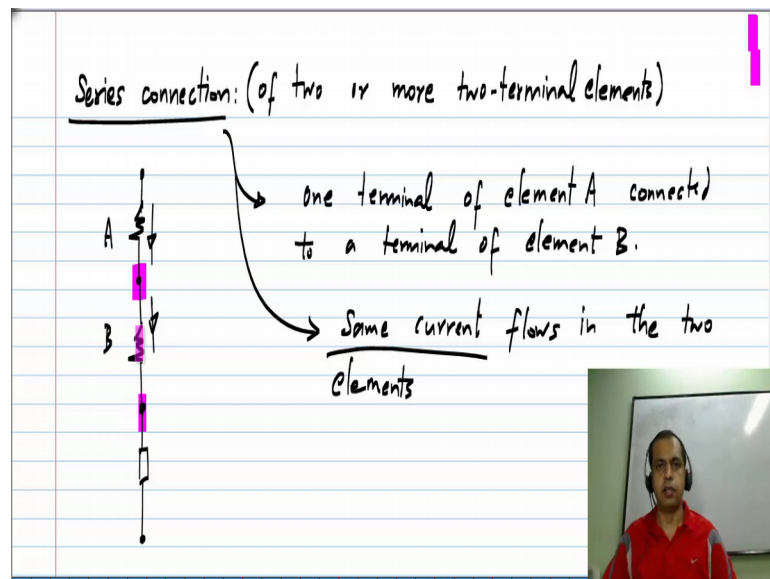 Series connection: (of two or more two-terminal elements)
one terminal of element A connected
to a terminal of element B.
A
B
Same current flows in the two
elements